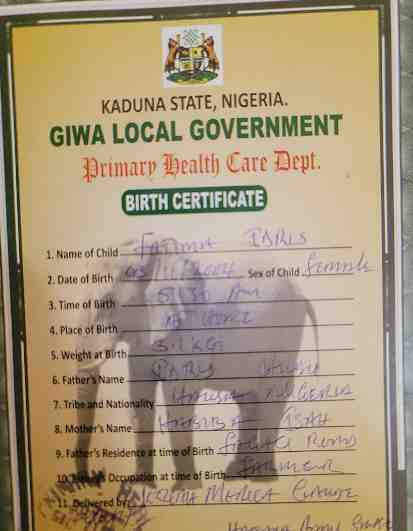 KADUNA STATE, NIGERIA.
GIWA LOCAL GOVERNMENT
Primary Health Care Dept.
BIRTH CERTIFICATE
1. Name of Child Fatima Idris
2. Date of Birth Sex of Child Female
3. Time of Birth 8:30 Am
4. Place of Birth At Home
5. Weight at Birth 3.1kg
6. Father's Name Idris
7. Tribe and Nationality Hausa Nigeria
8. Mother's Name Habiba Isah
9. Father's Residence at time of Birth
10. Father's Occupation at time of Birth Farmer
11. Delivered by